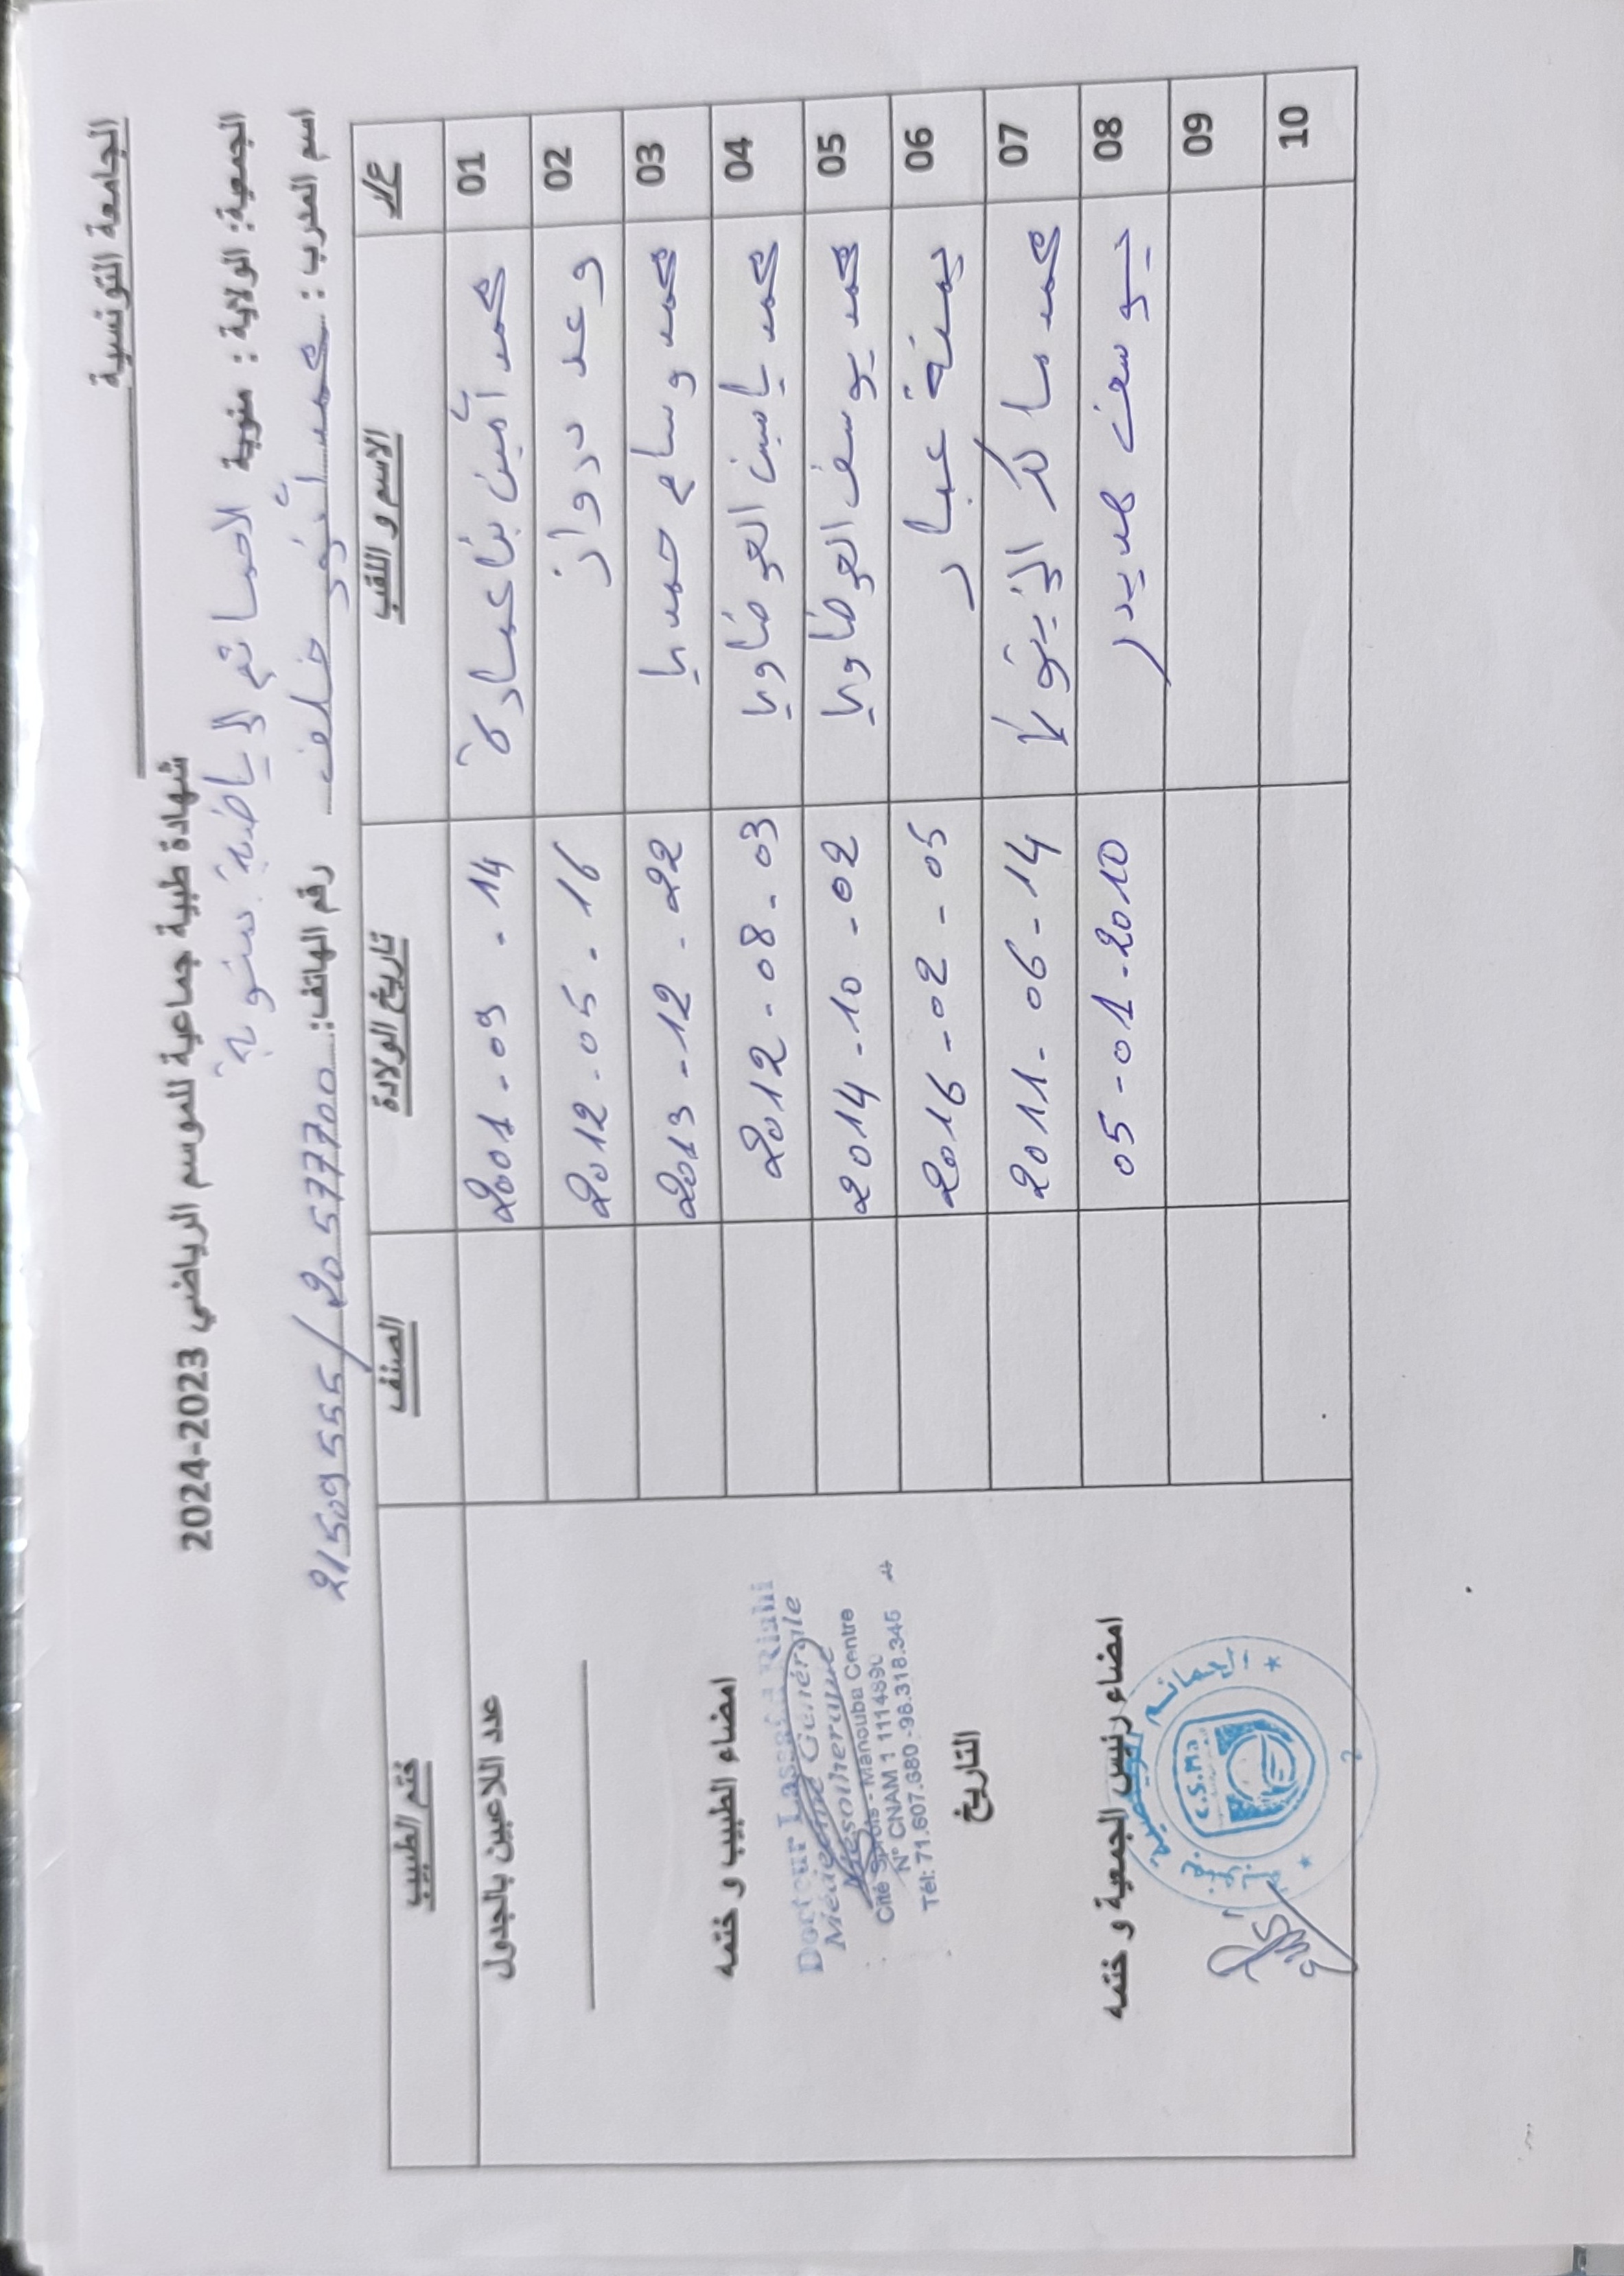 الجامعة التونسية
شهادة طبية جماعية للموسم الرياضي 2023-2024
الجمعية: الولاية : منوبة الحمائم الرياضية بمنوبة
اسم المدرب : محمد أنور خلف رقم الهاتف: 21509555/20577700
ع/ر الاسم و اللقب تاريخ الولادة الصنف ختم الطبيب
01 محمد أمين بناعمارة 2001-09-14
02 وعد درواز 2012-05-16
03 محمد وسام حمدي 2013-12-22
04 محمد ياسين العوضاوي 2012-08-03
05 محمد يوسف العوضاوي 2014-10-02
06 يمنة عمار 2016-02-05
07 محمد مالك الزيتوني 2011-06-14
08 يوسف هدير 05-01-2010
09
10
عدد اللاعبين بالجدول
امضاء الطبيب و ختمه
Docteur Lassaad Riahi
Médecine Générale
Mésothérapie
Cité Sports - Manouba Centre
N° CNAM 1 1114890
Tél: 71.607.680 -98.318.345
التاريخ
امضاء رئيس الجمعية و ختمه
C.S.Ma